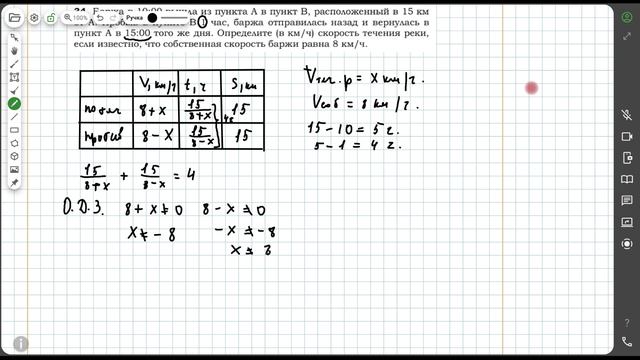 Ручка
24. Баржа в 10:00 вышла из пункта А в пункт В, расположенный в 15 км
от А. Пробыв в пункте В 1 час, баржа отправилась назад и вернулась в
пункт А в 15:00 того же дня. Определите (в км/ч) скорость течения реки,
если известно, что собственная скорость баржи равна 8 км/ч.
V, км/ч t, ч S, км
по теч 8+x 15/(8+x) 15
против 8-x 15/(8-x) 15
4ч
Vтеч.р = x км/ч.
Vсоб = 8 км/ч.
15-10=5ч.
5-1=4ч.
15/(8+x) + 15/(8-x) = 4
О.Д.З. 8+x≠0 8-x≠0
x≠-8 -x≠-8
x≠8